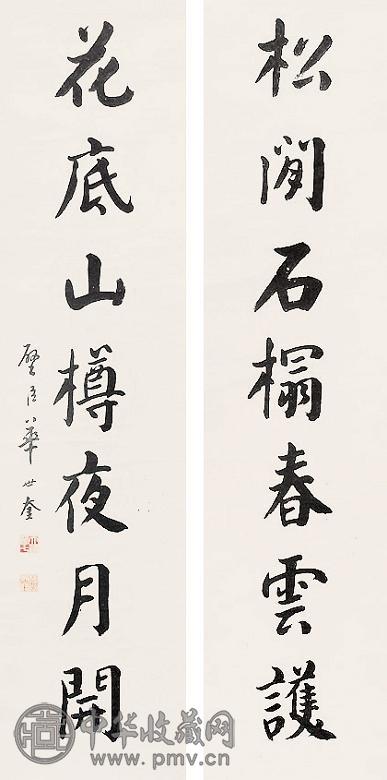 松間石榻春雲護
花底山樽夜月開
壁臣華世奎
中华收藏网
www.pmv.cn